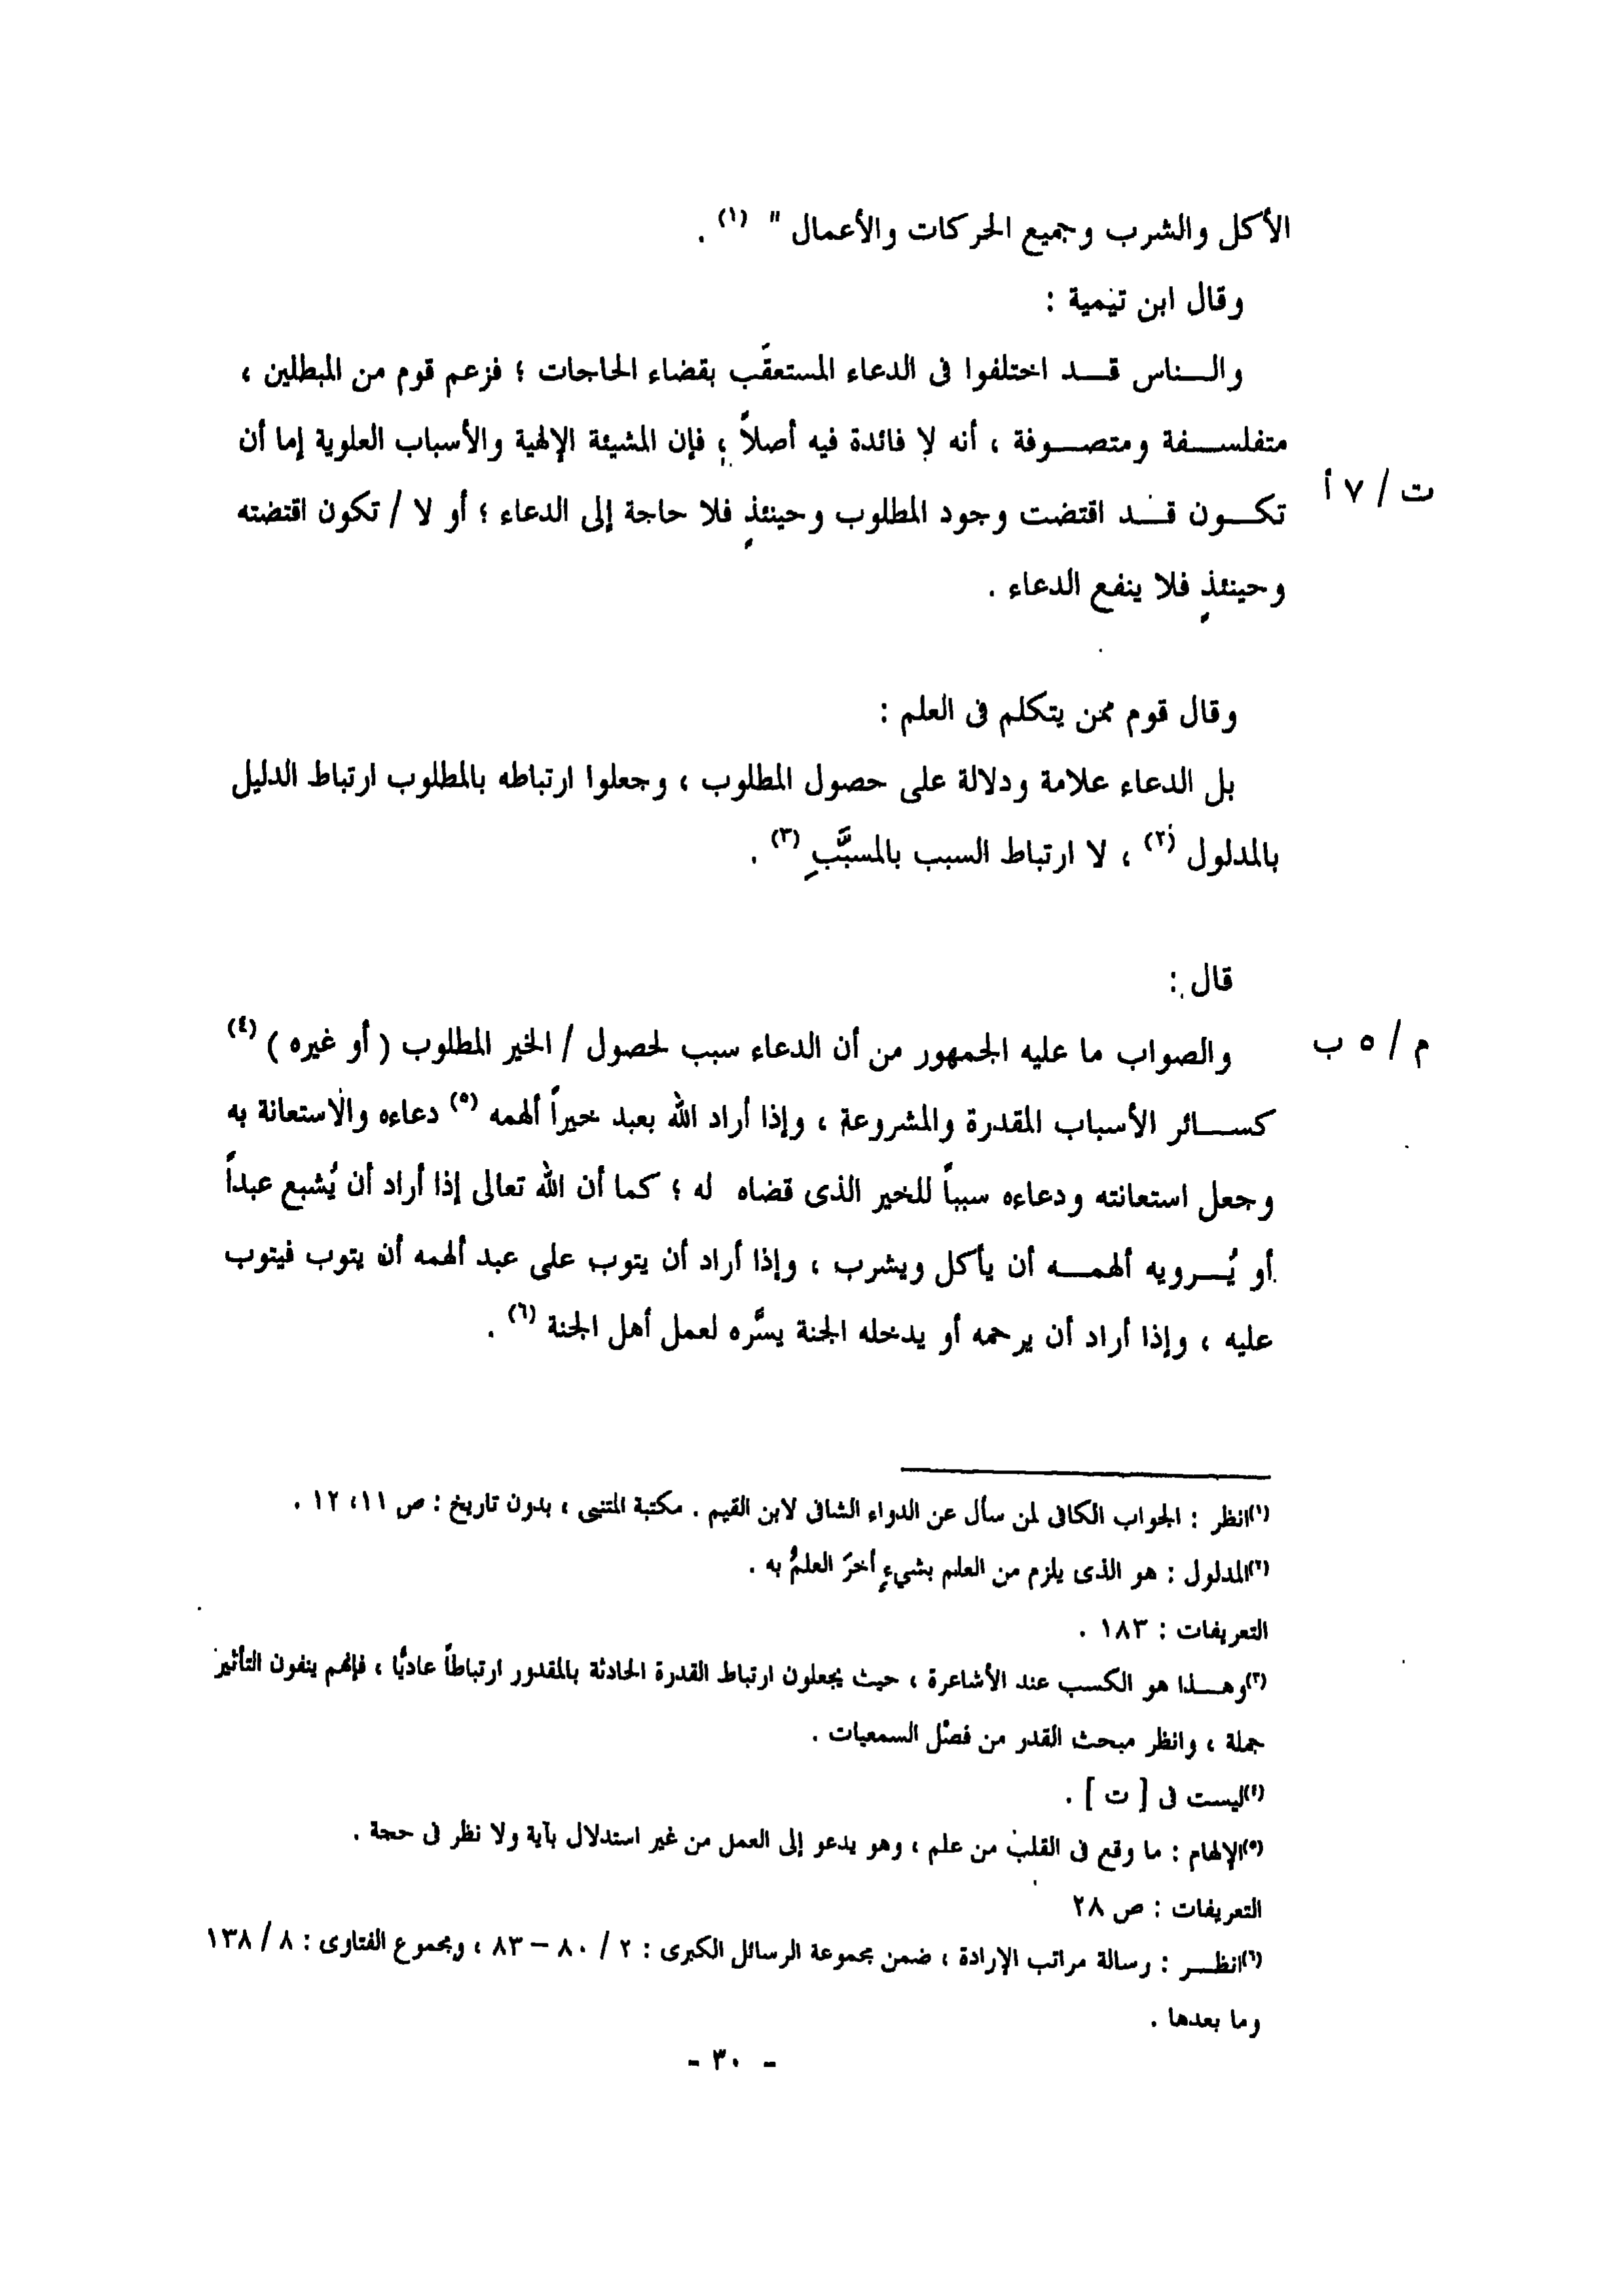 الأكل والشرب وجميع الحركات والأعمال " (١) .
وقال ابن تيمية :
والناس قد اختلفوا فى الدعاء المستعقَب بقضاء الحاجات ؛ فزعم قوم من المبطلين ،
متفلسفة ومتصوفة ، أنه لا فائدة فيه أصلاً ؛ فإن المشيئة الإلهية والأسباب العلوية إما أن
ت / ٧ أ
تكون قد اقتضت وجود المطلوب وحينئذٍ فلا حاجة إلى الدعاء ؛ أو لا / تكون اقتضته
وحينئذٍ فلا ينفع الدعاء .
وقال قوم ممن يتكلم فى العلم :
بل الدعاء علامة ودلالة على حصول المطلوب ، وجعلوا ارتباطه بالمطلوب ارتباط الدليل
بالمدلول (٢) ، لا ارتباط السبب بالمسبَّبِ (٣) .
قال :
م / ٥ ب
والصواب ما عليه الجمهور من أن الدعاء سبب لحصول / الخير المطلوب ( أو غيره ) (٤)
كسائر الأسباب المقدرة والمشروعة ، وإذا أراد الله بعبد خيراً ألهمه (٥) دعاءه والاستعانة به
وجعل استعانته ودعاءه سبباً للخير الذى قضاه له ؛ كما أن الله تعالى إذا أراد أن يُشبع عبداً
أو يُرويه ألهمه أن يأكل ويشرب ، وإذا أراد أن يتوب على عبد ألهمه أن يتوب فيتوب
عليه ، وإذا أراد أن يرحمه أو يدخله الجنة يسَّره لعمل أهل الجنة (٦) .
(١)انظر : الجواب الكافى لمن سأل عن الدواء الشافى لابن القيم . مكتبة المتنبى ، بدون تاريخ : ص ١١، ١٢ .
(٢)المدلول : هو الذى يلزم من العلم بشيءٍ أخرَ العلمُ به .
التعريفات : ١٨٣ .
(٣)وهذا هو الكسب عند الأشاعرة ، حيث يجعلون ارتباط القدرة الحادثة بالمقدور ارتباطاً عاديًا ، فإنهم ينفون التأثير
جملة ، وانظر مبحث القدر من فصل السمعيات .
(٤)ليست فى [ ت ] .
(٥)الإلهام : ما وقع فى القلب من علم ، وهو يدعو إلى العمل من غير استدلال بآية ولا نظر فى حجة .
التعريفات : ص ٢٨
(٦)انظر : رسالة مراتب الإرادة ، ضمن مجموعة الرسائل الكبرى : ٢ / ٨٠ – ٨٣ ، ومجموع الفتاوى : ٨ / ١٣٨
وما بعدها .
- ٣٠ -